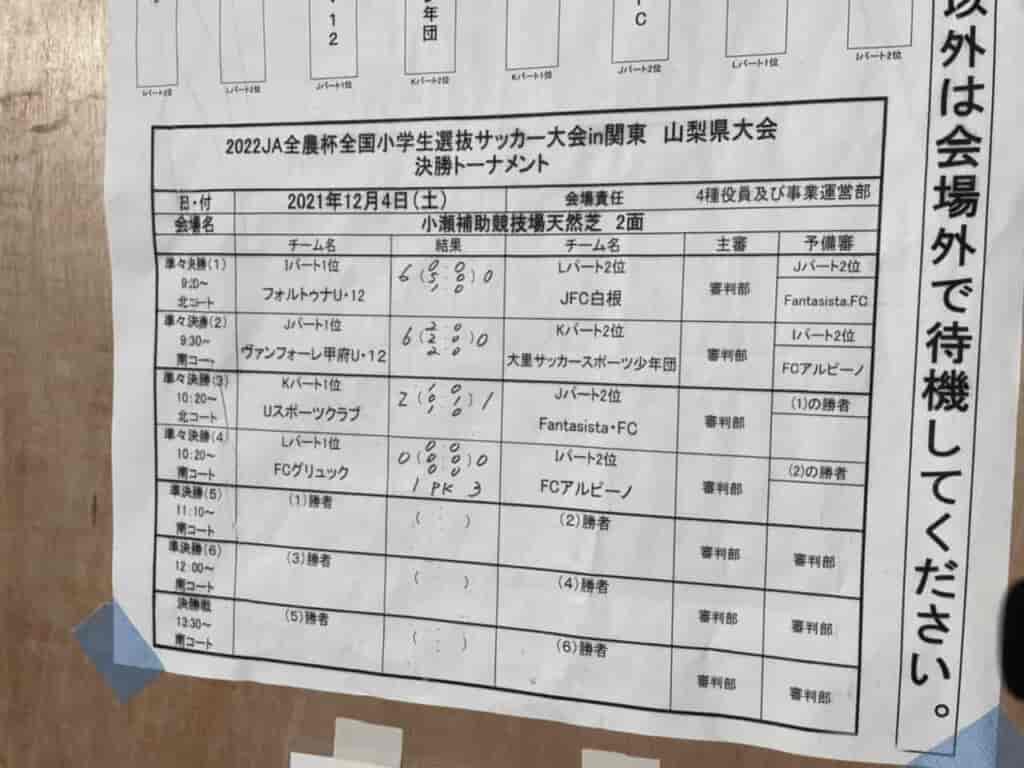 12
年団
C
Iパート2位
Lパート2位
Jパート1位
Kパート2位
Kパート1位
Jパート2位
Lパート1位
Iパート2位
外は会場外で待機してください。
2022JA全農杯全国小学生選抜サッカー大会in関東 山梨県大会
決勝トーナメント
日・付 2021年12月4日(土) 会場責任 4種役員及び事業運営部
会場名 小瀬補助競技場天然芝 2面
チーム名 結果 チーム名 主審 予備審
準々決勝(1) Iパート1位 0 0 Lパート2位 Jパート2位
9:30~ 6(5:0)0 審判部
北コート フォルトゥナU・12 1 0 JFC白根 Fantasista.FC
準々決勝(2) Jパート1位 2 0 Kパート2位 Iパート2位
9:30~ 6(2:0)0 審判部
南コート ヴァンフォーレ甲府U・12 2 0 大里サッカースポーツ少年団 FCアルピーノ
準々決勝(3) Kパート1位 1 0 Jパート2位 (1)の勝者
10:20~ 2(0:1)1 審判部
北コート Uスポーツクラブ 1 0 Fantasista・FC
準々決勝(4) Lパート1位 0 0 Iパート2位 (2)の勝者
10:20~ 0(0:0)0 審判部
南コート FCグリュック 0 0 FCアルピーノ
1 PK 3
準決勝(5) (1)勝者 ( : ) (2)勝者
11:10~ 審判部 審判部
南コート
準決勝(6) (3)勝者 ( : ) (4)勝者
12:00~ 審判部 審判部
南コート
決勝戦 (5)勝者 ( : ) (6)勝者
13:30~ 審判部 審判部
南コート